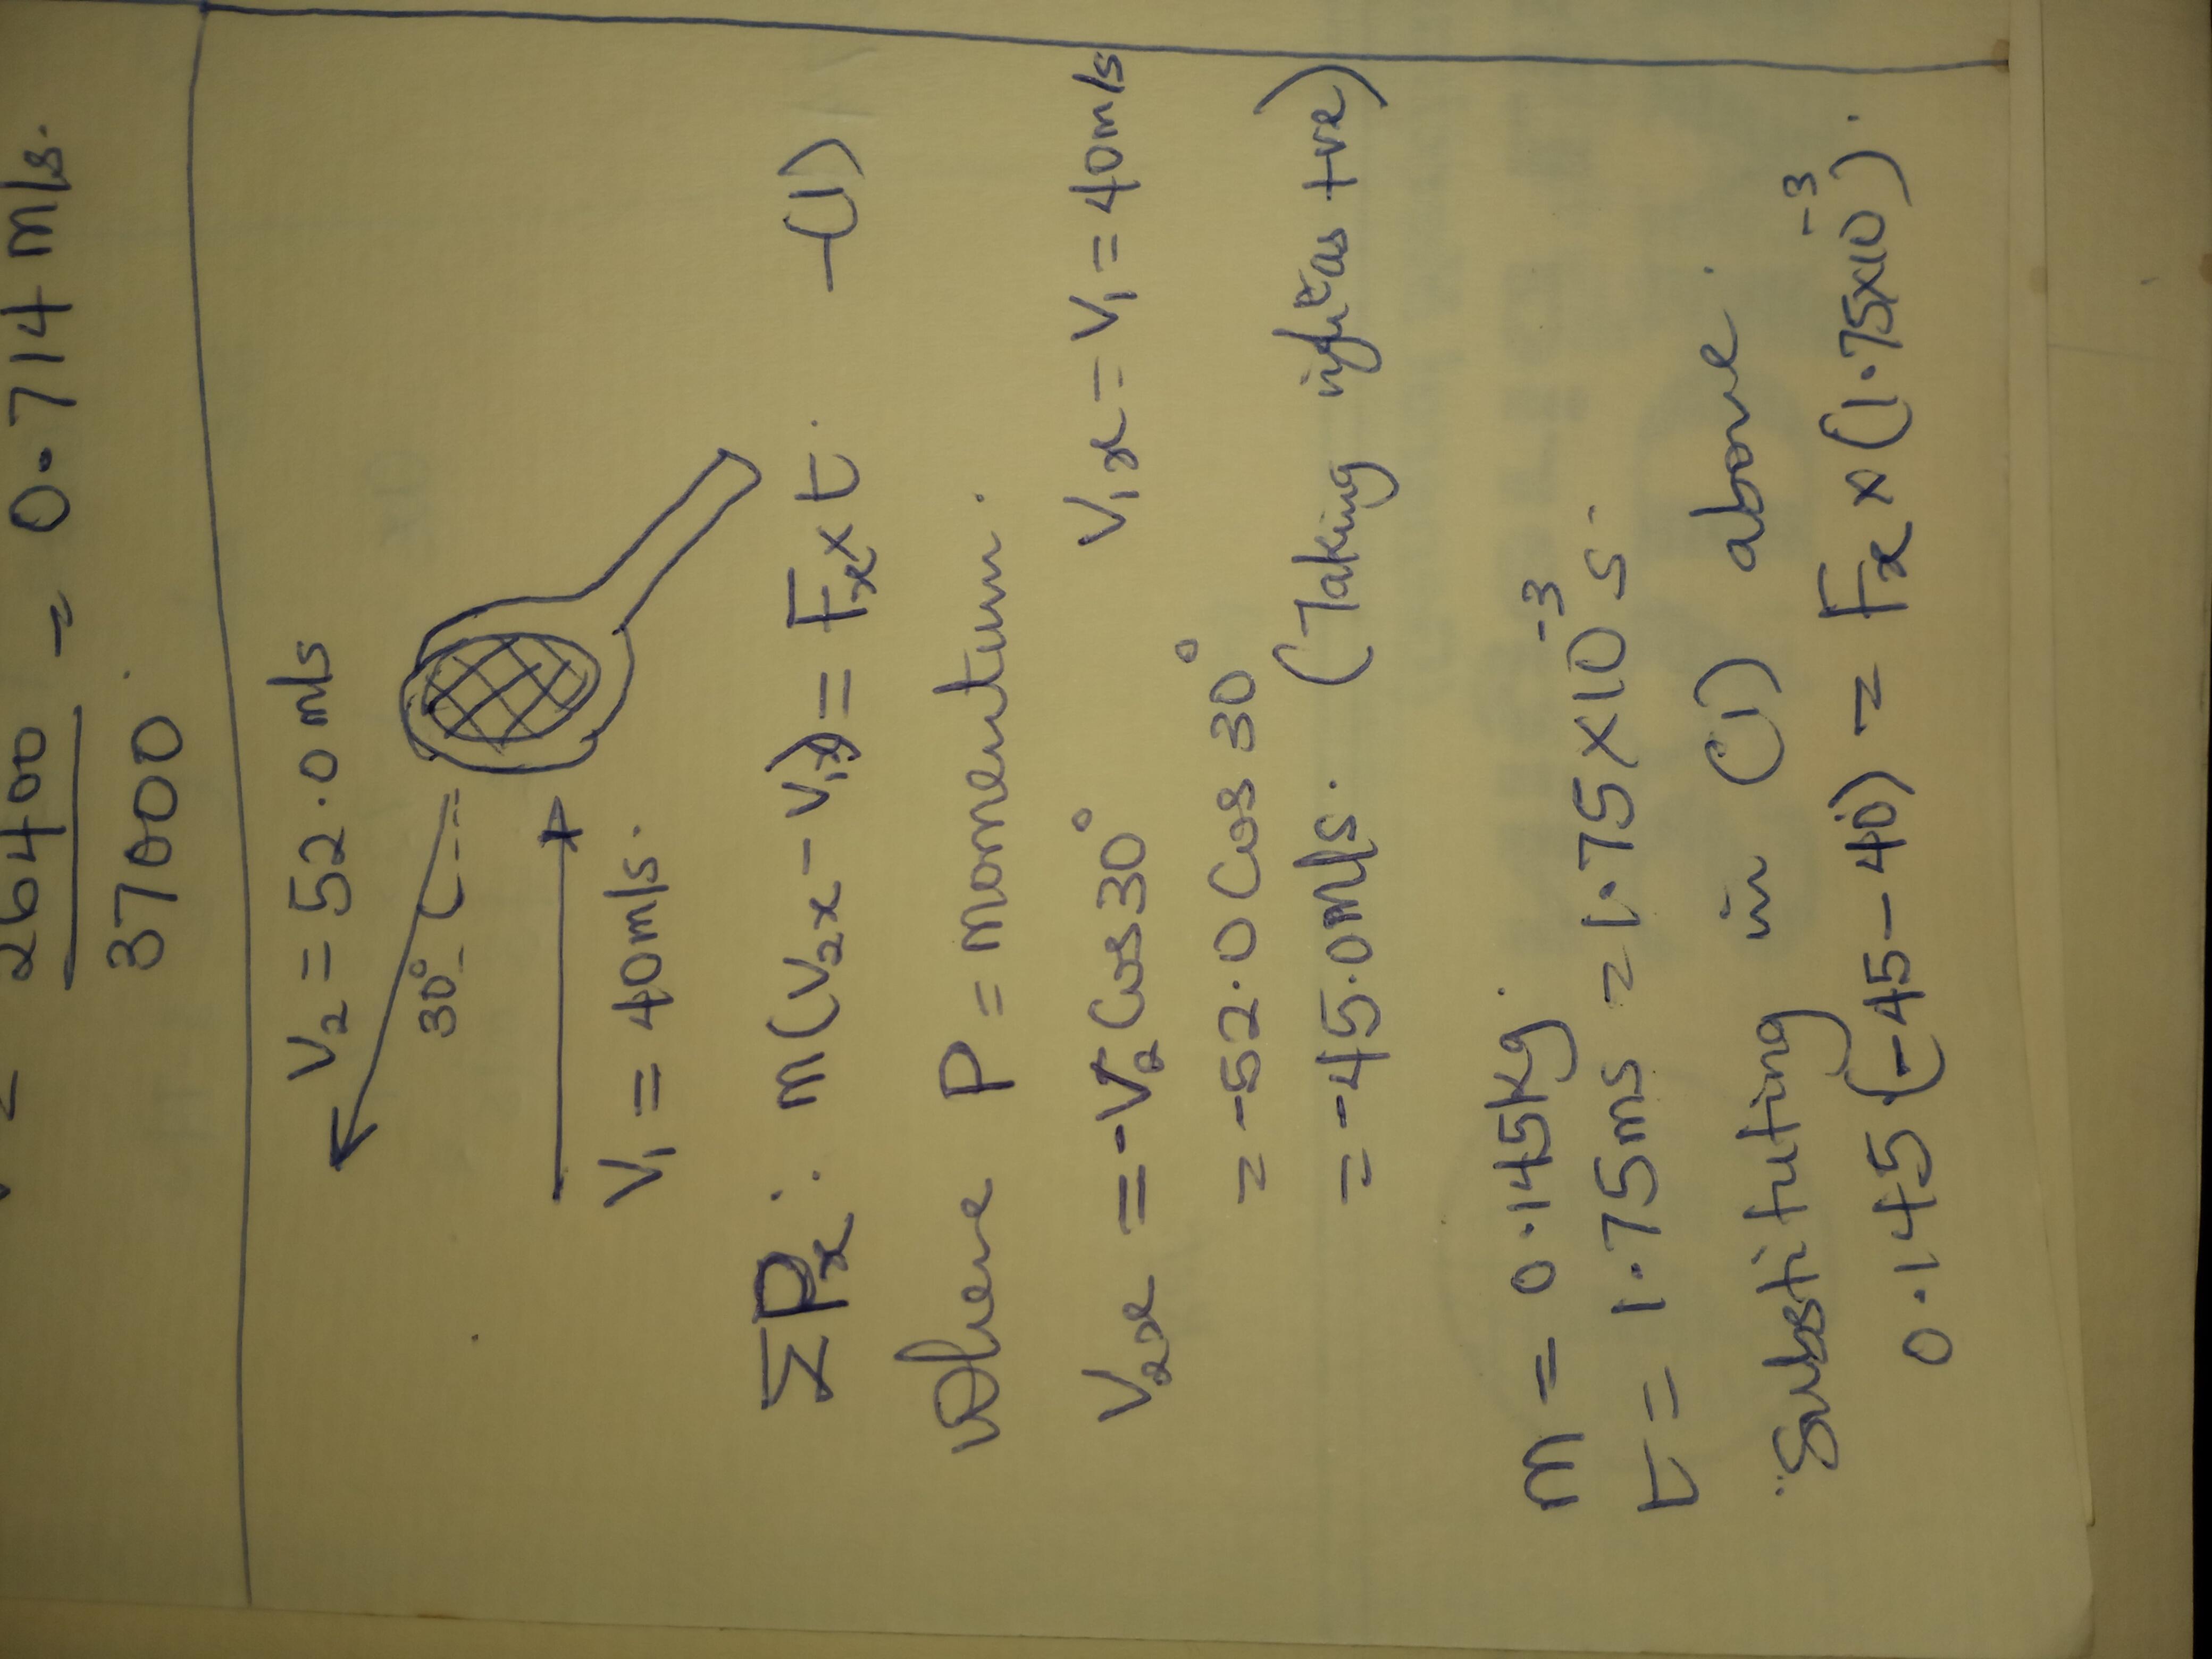 = 26400 = 0.714 m/s.
37000
V₂ = 52.0 m/s
30°
V₁ = 40 m/s.
ΣPₓ: m(V₂ₓ - V₁ₓ) = Fₓ × t. -(1)
Where P = momentum.
V₂ₓ = -V₂ Cos 30° V₁ₓ = V₁ = 40 m/s
= -52.0 Cos 30°
= -45.0 m/s. (Taking right as +ve)
m = 0.145 kg.
t = 1.75 ms = 1.75 × 10⁻³ s.
Substituting in (1) above.
0.145 (-45 - 40) = Fₓ × (1.75 × 10⁻³).